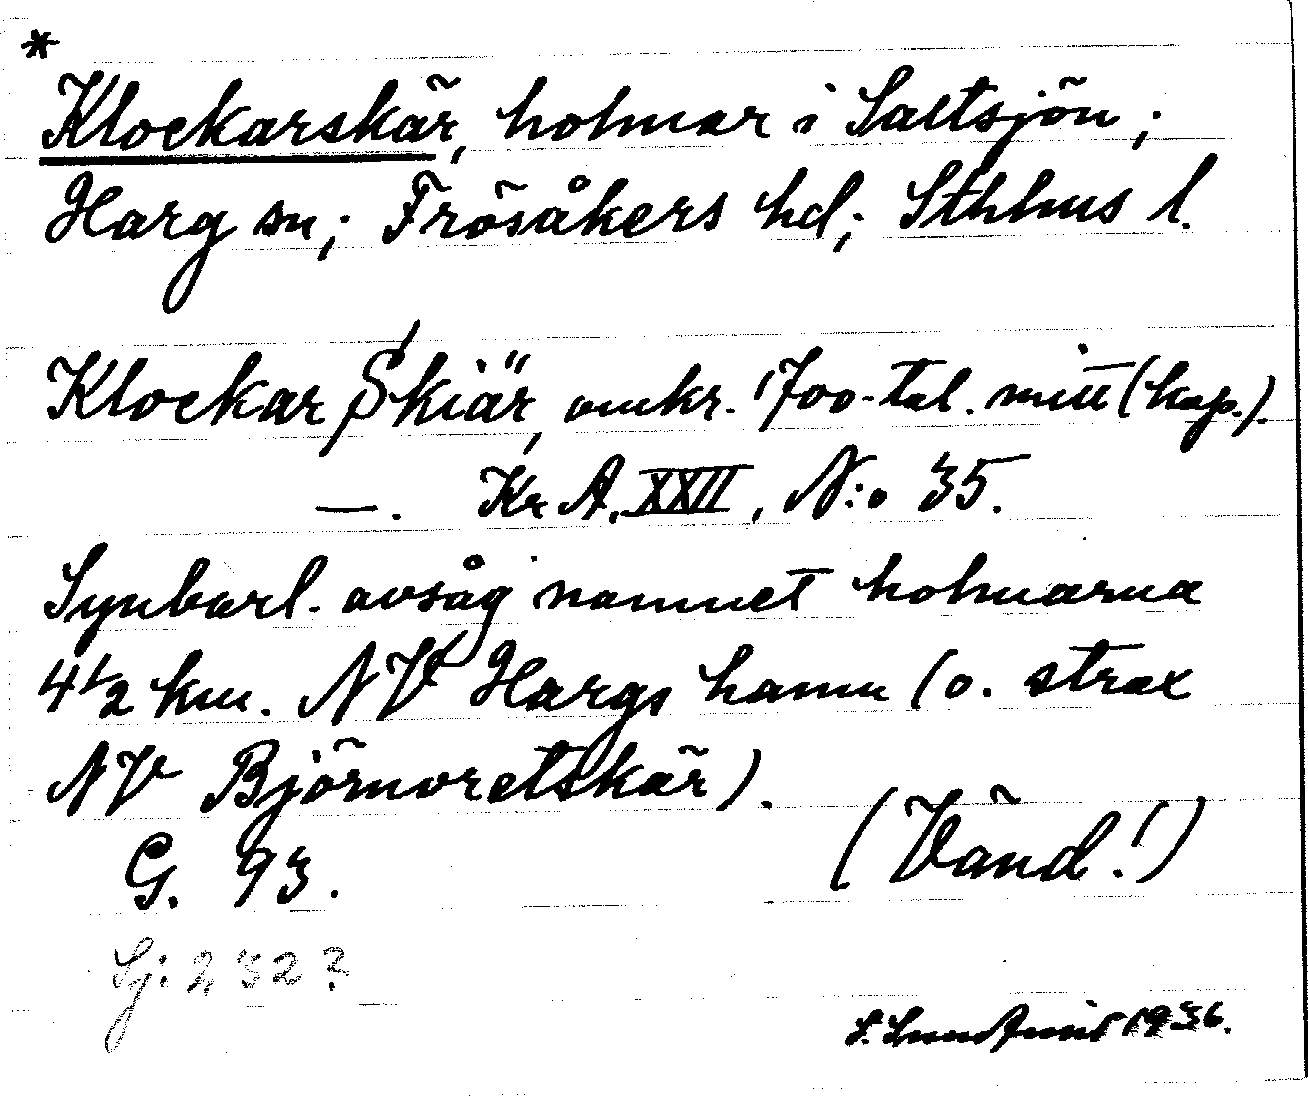 *
Klockarskär, holmar i Saltsjön;
Harg sn; Frösåkers hd; Sthlms l.
Klockar Skiär, omkr. 1700-tal. mitt (kop.).
—. Kr A, XXII, N:o 35.
Synbarl. avsåg namnet holmarna
4 1/2 km. NV Hargs hamn (o. strax
NV Björnoretskär).
G. 93. (Vänd!)
Sj: 232?
S. Lundkvist 1936.